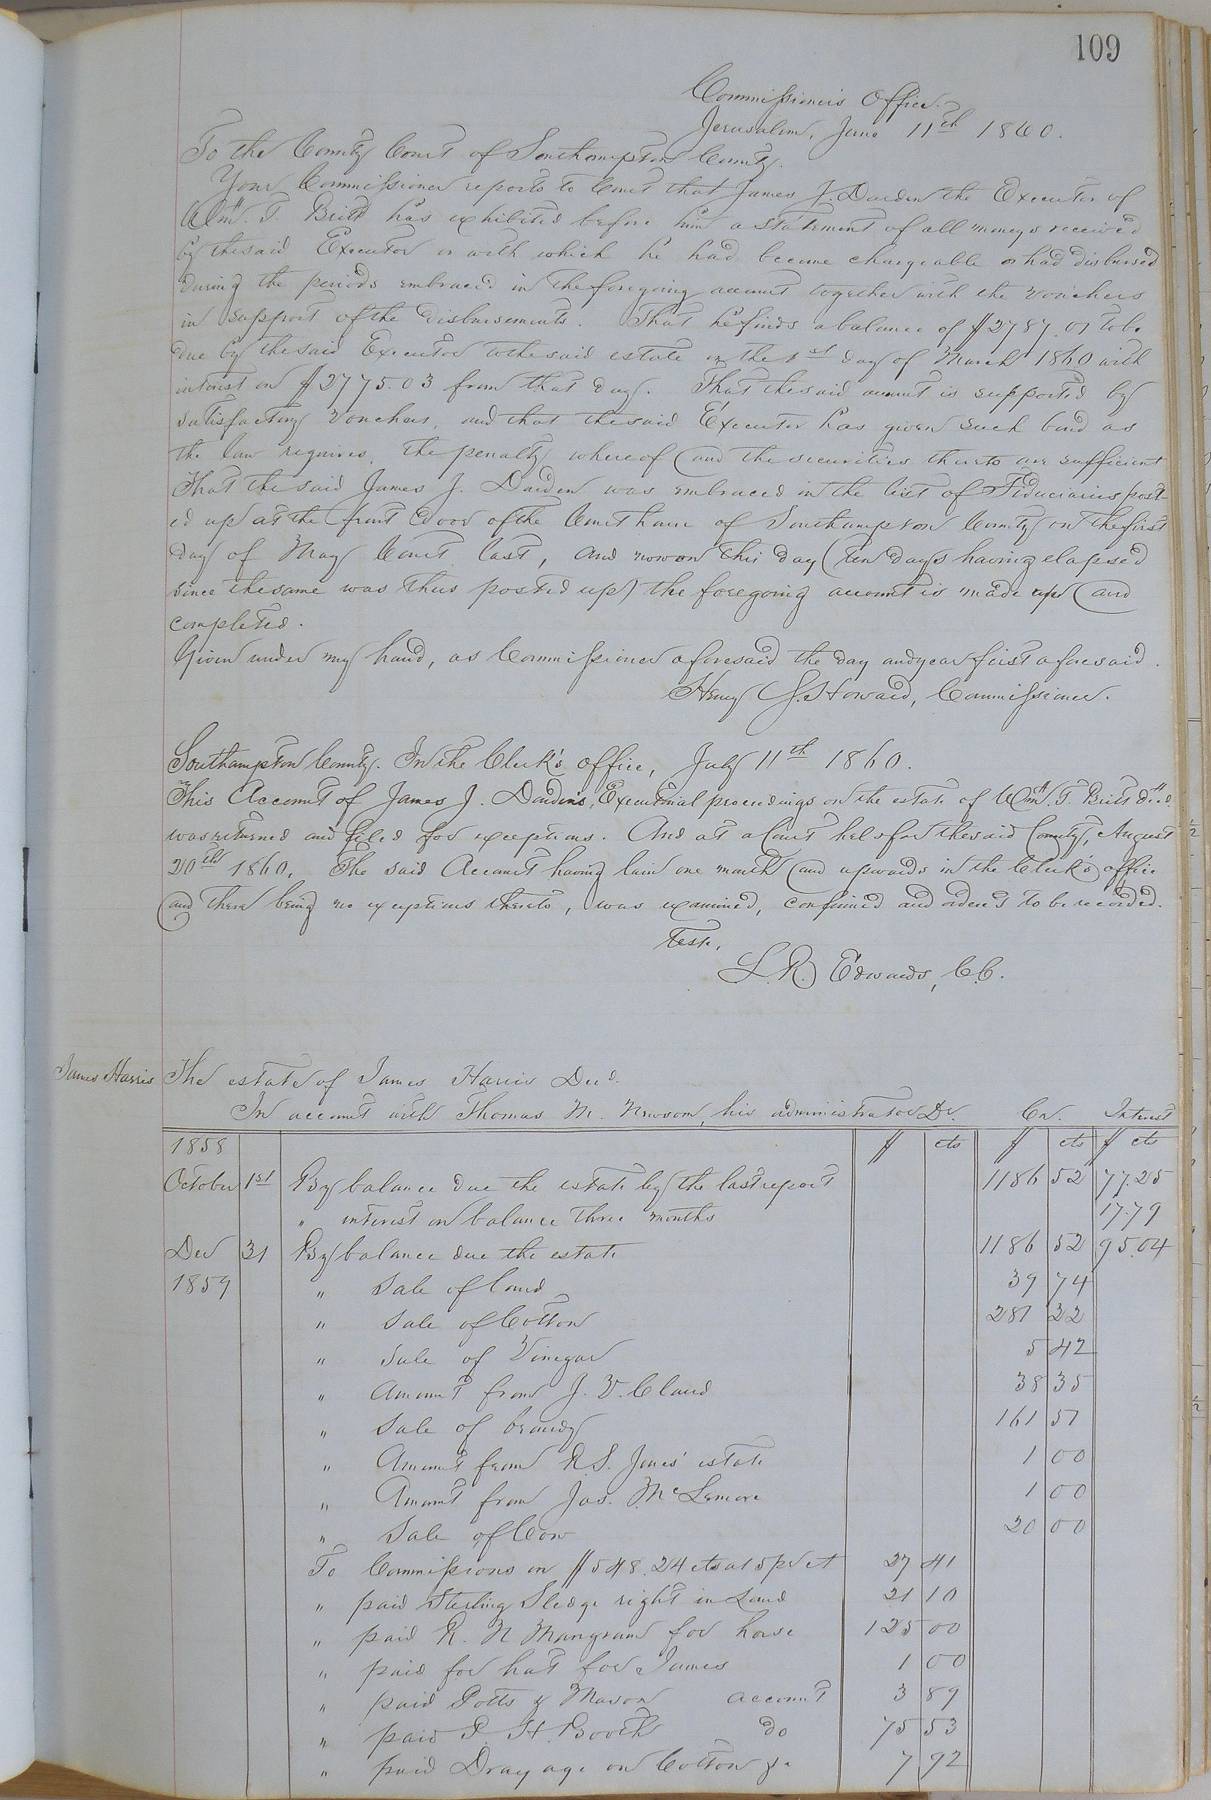 109
Commissioner's Office.
Jerusalem, June 11th 1860.
To the County Court of Southampton County.
Your Commissioner reports to Court that James J. Darden the Executor of
Wm. T. Britt has exhibited before him a statement of all moneys received
by the said Executor or with which he had become chargeable or had disbursed
during the periods embraced in the foregoing account together with the vouchers
in support of the disbursements. That he finds a balance of $2787.07 to be
due by the said Executor to the said estate on the 1st day of March 1860 with
interest on $2775.03 from that day. That the said account is supported by
satisfactory vouchers, and that the said Executor has given such bond as
the law requires, the penalty whereof and the securities thereto are sufficient
That the said James J. Darden was embraced in the list of Fiduciaries post-
ed up at the front door of the Courthouse of Southampton County on the first
day of May Court last, and now on this day (ten days having elapsed
since the same was thus posted up) the foregoing account is made up and
completed.
Given under my hand, as Commissioner aforesaid the day and year first aforesaid.
Henry S. Howard, Commissioner.
Southampton County. In the Clerk's office, July 11th 1860.
This Account of James J. Darden's, Executorial proceedings on the estate of Wm. T. Britt decd
was returned and filed for exceptions. And at a Court held for the said County, August
20th 1860. The said Account having lain one month and upwards in the Clerk's office
and there being no exceptions thereto, was examined, confirmed and ordered to be recorded.
Teste,
L. R. Edwards, C.C.
James Harris The estate of James Harris Decd.
In account with Thomas M. Newsom, his administrator Dr. Cr. Interest
1858 $ cts $ cts $ cts
October 1st By balance due the estate by the last report 1186 52 77.25
" interest on balance three months 17.79
Dec 31 By balance due the estate 1186 52 95.04
1859 " Sale of Corn 39 74
" Sale of Cotton 281 22
" Sale of Vinegar 5 42
" Amount from J. V. Claud 38 35
" Sale of brandy 161 51
" Amount from R. S. Jones' estate 1 00
" Amount from Jas. McLemore 1 00
" Sale of Cow 20 00
To Commissions on $548.24 cts at 5 pr ct 27 41
" paid Sterling Sledge right in Land 21 10
" paid R. N Mangram for horse 125 00
" paid for hat for James 1 00
" paid Potts & Mason account 3 89
" paid P. H. Booth do 75 53
" paid Drayage on Cotton &c 7 92